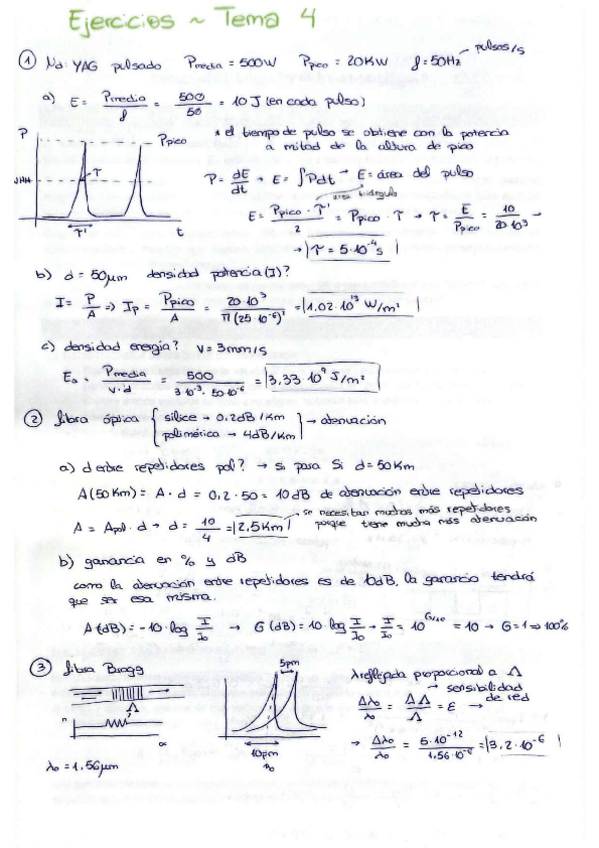 Ejercicios ~ Tema 4
① Nd YAG pulsado Pmedia = 500W Ppico = 20KW f = 50Hz → pulsos/s
a) E = Pmedia / f = 500 / 50 = 10 J (en cada pulso)
* el tiempo de pulso se obtiene con la potencia
a mitad de la altura de pico
P
Ppico
τ
τ'
t
P = dE/dt → E = ∫Pdt → E = área del pulso
área triángulo
E = Ppico · τ' / 2 = Ppico · τ → τ = E / Ppico = 10 / 20·10³ →
→ τ = 5·10⁻⁴ s
b) d = 50μm densidad potencia (I)?
I = P/A => Ip = Ppico / A = 20·10³ / π(25·10⁻⁶)² = 1.02·10¹³ W/m²
c) densidad energía? v = 3mm/s
Ea = Pmedia / v·d = 500 / 3·10⁻³·50·10⁻⁶ = 3,33·10⁹ J/m²
② fibra óptica { silice → 0.2dB/Km
polimérica → 4dB/Km } → atenuación
a) d entre repetidores pol? → si para Si d = 50Km
A(50Km) = A · d = 0,2 · 50 = 10 dB de atenuación entre repetidores
A = Apol · d → d = 10/4 = 2,5Km → se necesitan muchos más repetidores
porque tiene mucha más atenuación
b) ganancia en % y dB
como la atenuación entre repetidores es de 10dB, la ganancia tendrá
que ser esa misma.
A(dB) = -10·log I/I₀ → G(dB) = 10·log I/I₀ → I/I₀ = 10^G/10 = 10 → G = 1 => 100%
③ fibra Bragg
Λ
n
x
λ₀ = 1.56μm
5pm
10pm
λ₀
λreflejada proporcional a Λ
→ sensibilidad
de red
Δλ₀/λ₀ = ΔΛ/Λ = ε →
→ Δλ₀/λ₀ = 5·10⁻¹² / 1,56·10⁻⁶ = 3,2·10⁻⁶